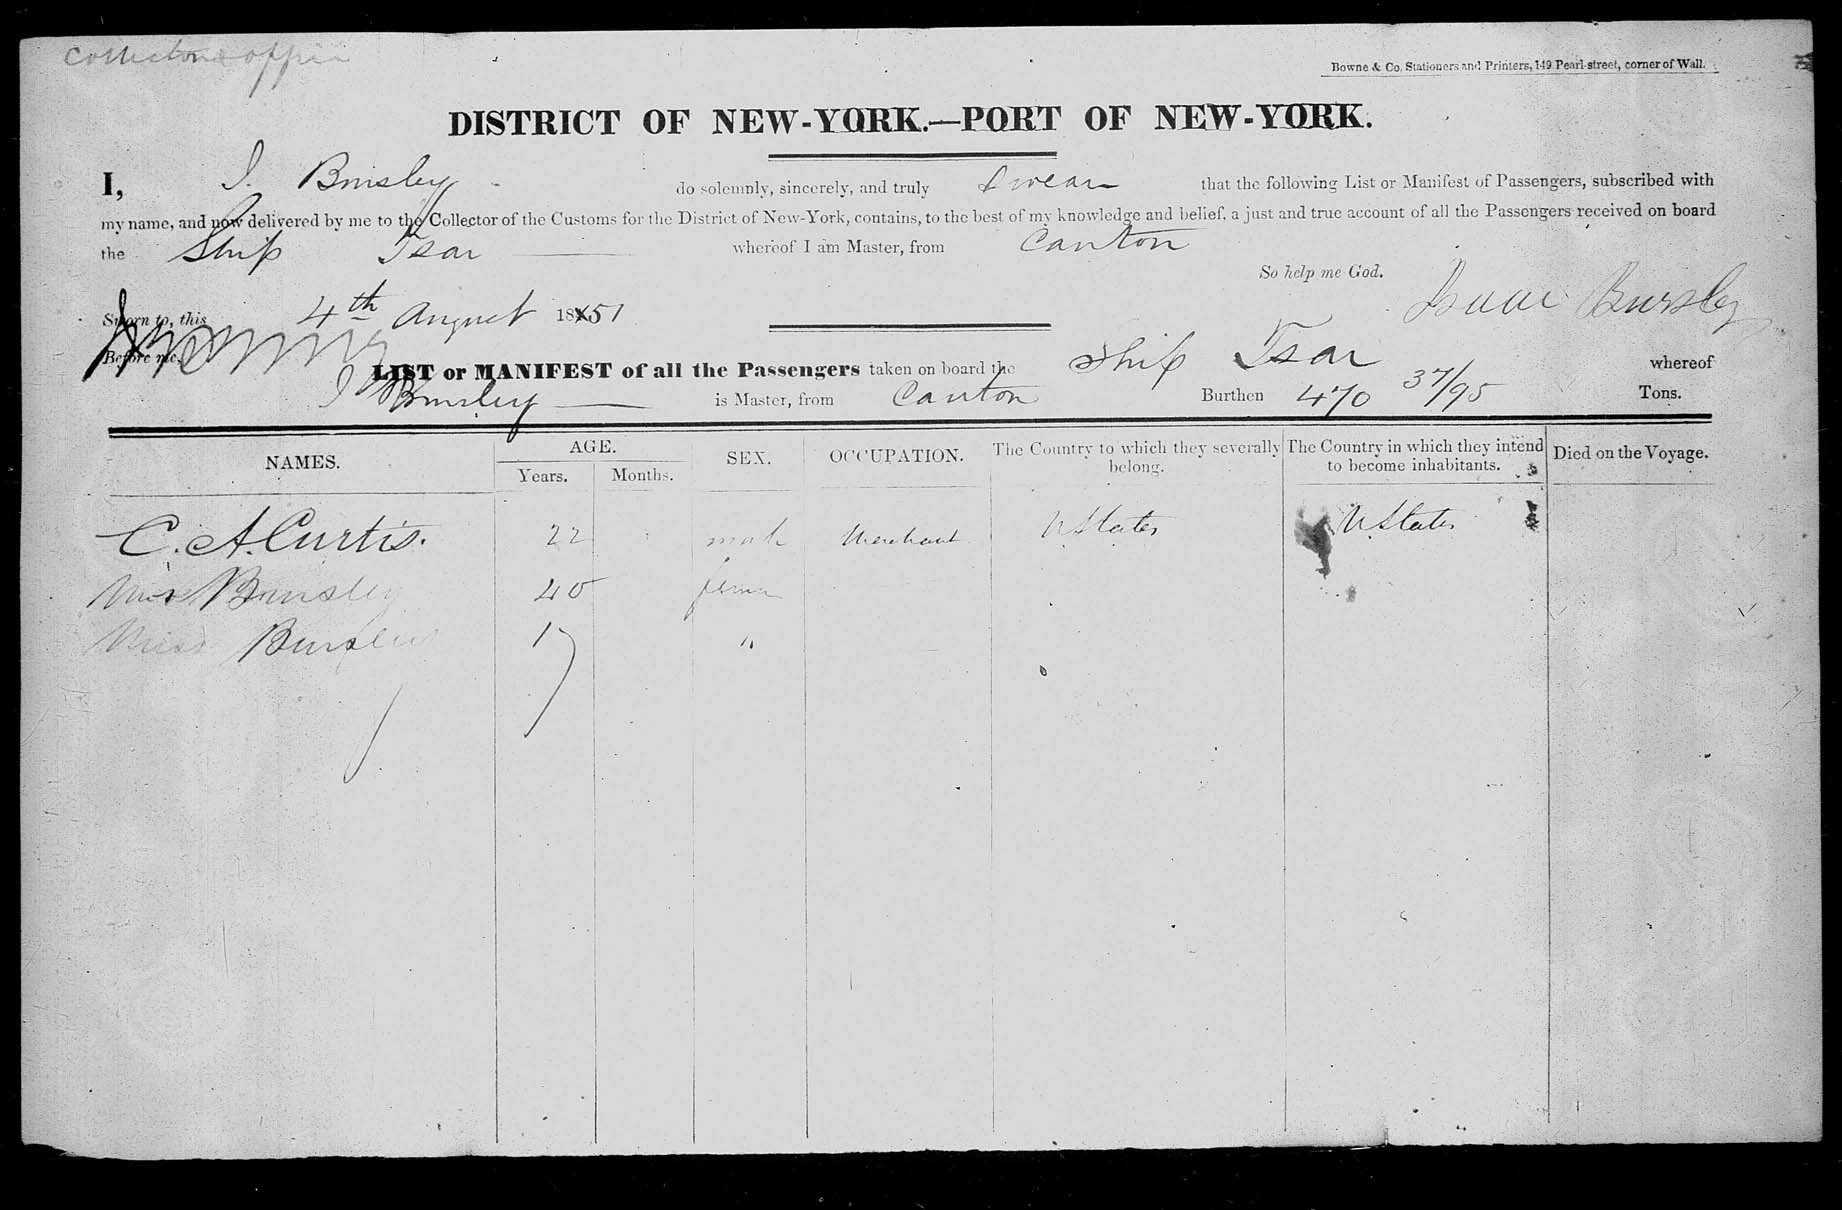 Collectors office
Bowne & Co. Stationers and Printers, 149 Pearl-street, corner of Wall.
DISTRICT OF NEW-YORK.—PORT OF NEW-YORK.
I, I. Bursley do solemnly, sincerely, and truly swear that the following List or Manifest of Passengers, subscribed with
my name, and now delivered by me to the Collector of the Customs for the District of New-York, contains, to the best of my knowledge and belief, a just and true account of all the Passengers received on board
the Ship Tsar whereof I am Master, from Canton
So help me God.
Sworn to, this 4th August 1851 Isaac Bursley
Before me,
LIST or MANIFEST of all the Passengers taken on board the Ship Tsar whereof
I Bursley is Master, from Canton Burthen 470 37/95 Tons.
NAMES. AGE. Years. Months. SEX. OCCUPATION. The Country to which they severally belong. The Country in which they intend to become inhabitants. Died on the Voyage.
C. A. Curtis. 22 male Merchant U States U States
Mrs Bursley 40 female
Miss Bursley 17 "